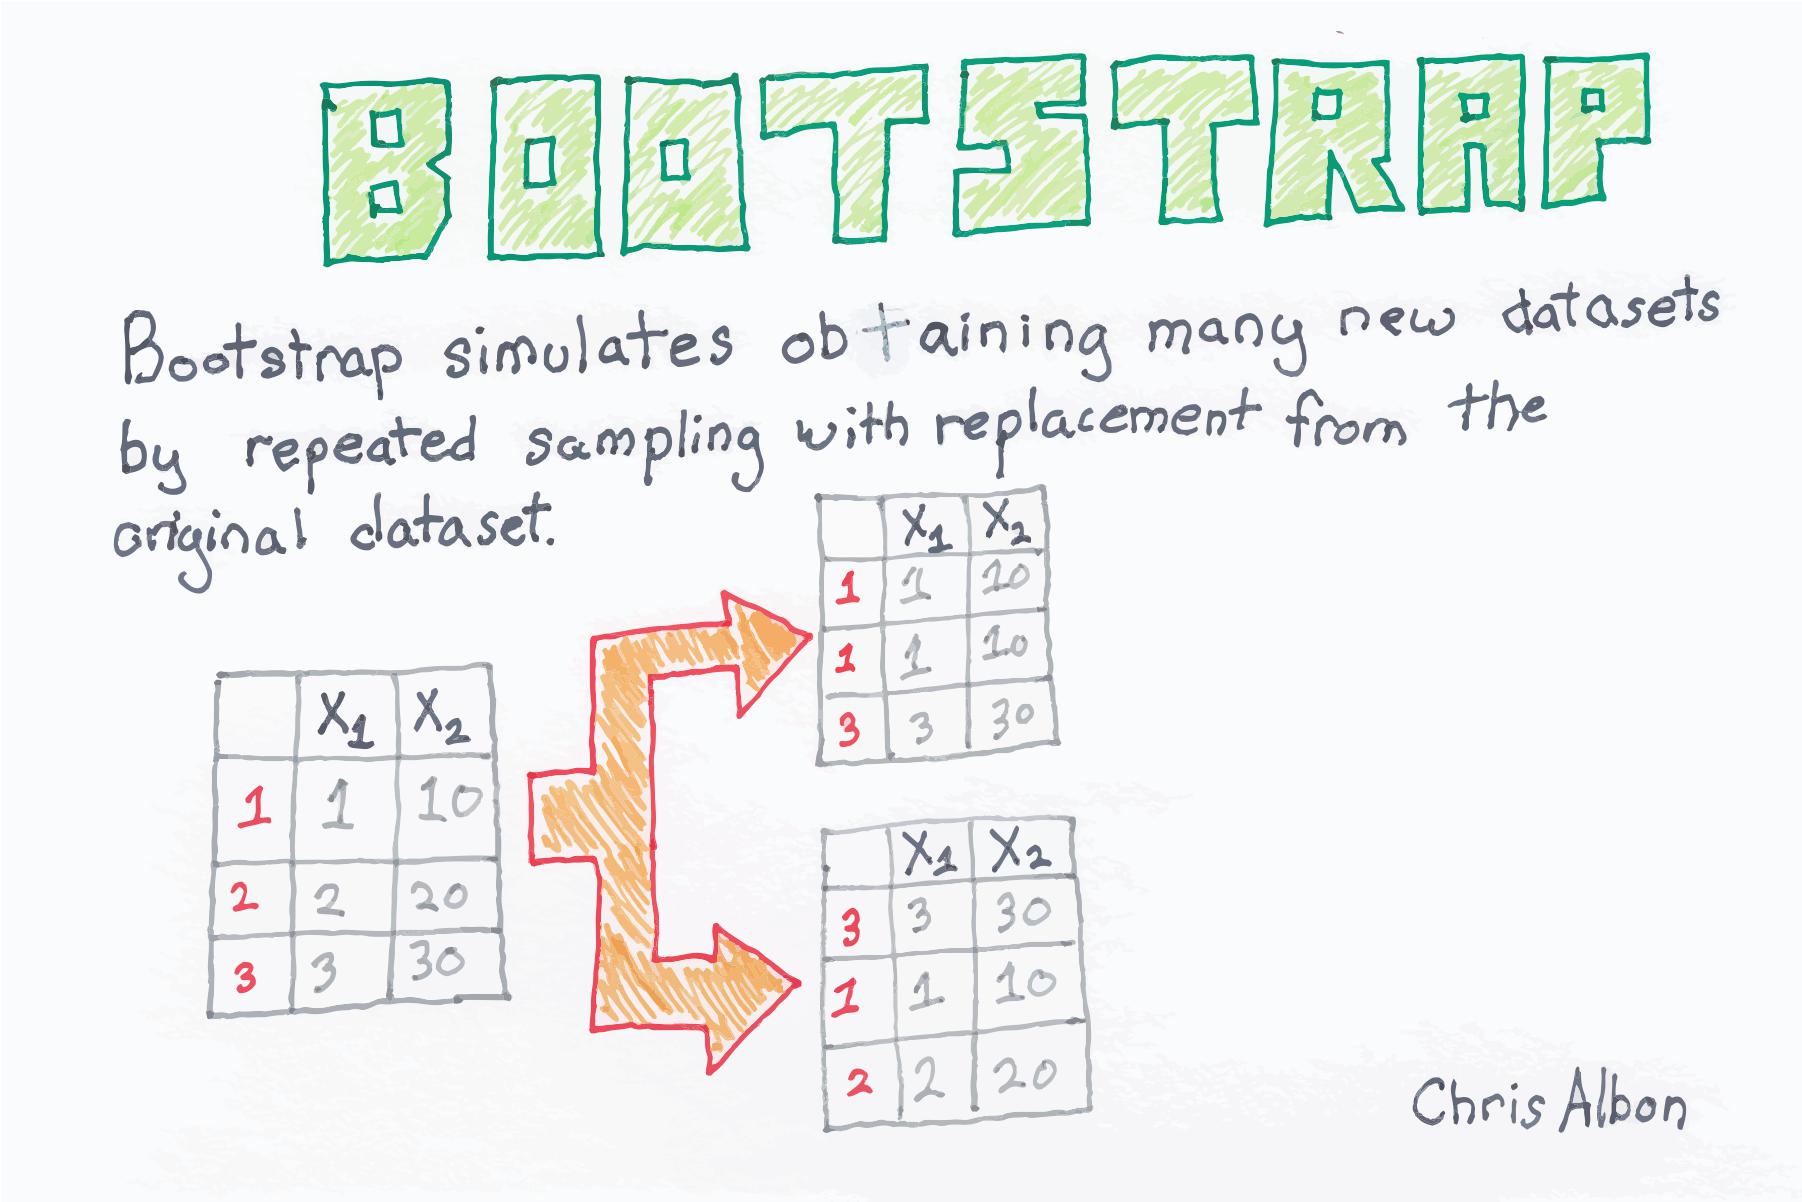 BOOTSTRAP
Bootstrap simulates obtaining many new datasets
by repeated sampling with replacement from the
original dataset.
X1 X2
1 1 10
2 2 20
3 3 30
X1 X2
1 1 10
1 1 10
3 3 30
X1 X2
3 3 30
1 1 10
2 2 20
Chris Albon